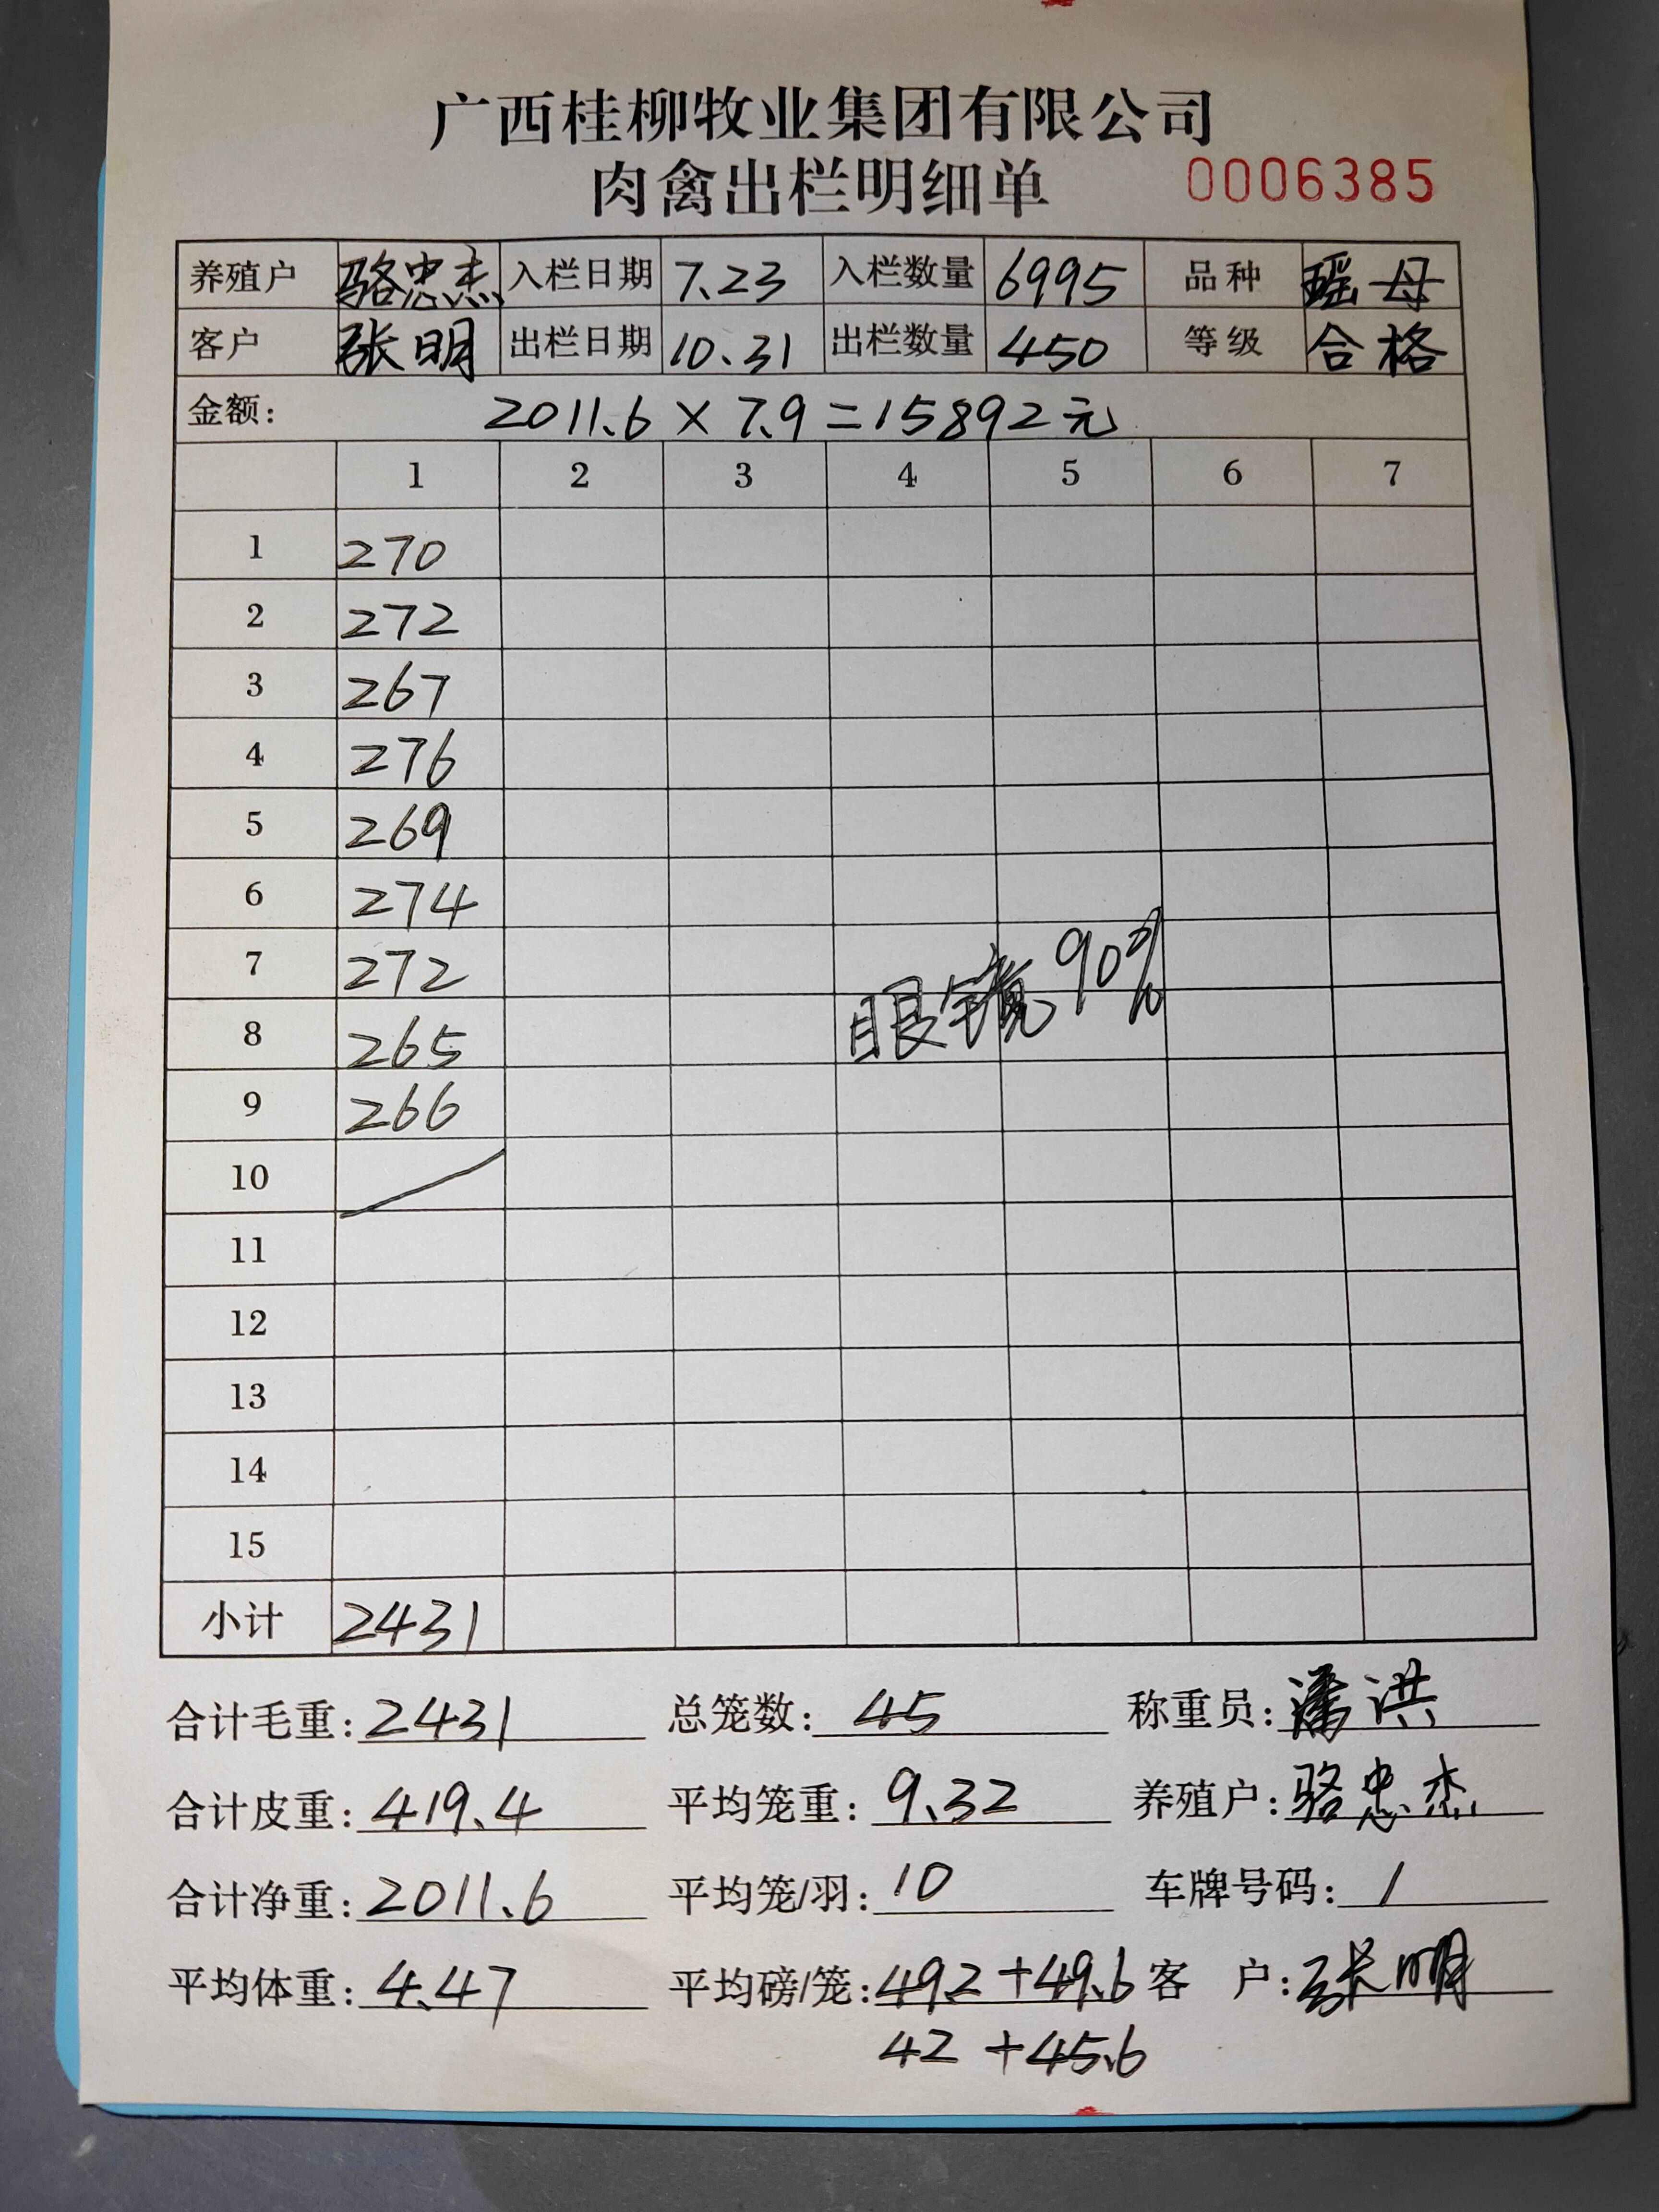 广西桂柳牧业集团有限公司
肉禽出栏明细单 0006385
养殖户 骆忠杰 入栏日期 7.23 入栏数量 6995 品种 瑶母
客户 张明 出栏日期 10.31 出栏数量 450 等级 合格
金额: 2011.6 × 7.9 = 15892元
1 2 3 4 5 6 7
1 270
2 272
3 267
4 276
5 269
6 274
7 272
眼镜90%
8 265
9 266
10
11
12
13
14
15
小计 2431
合计毛重: 2431 总笼数: 45 称重员: 潘洪
合计皮重: 419.4 平均笼重: 9.32 养殖户: 骆忠杰
合计净重: 2011.6 平均笼/羽: 10 车牌号码: 1
平均体重: 4.47 平均磅/笼: 49.2+49.6 客户: 张明
42+45.6